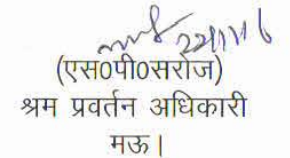 22/11/16
(एस०पी०सरोज)
श्रम प्रवर्तन अधिकारी
मऊ।